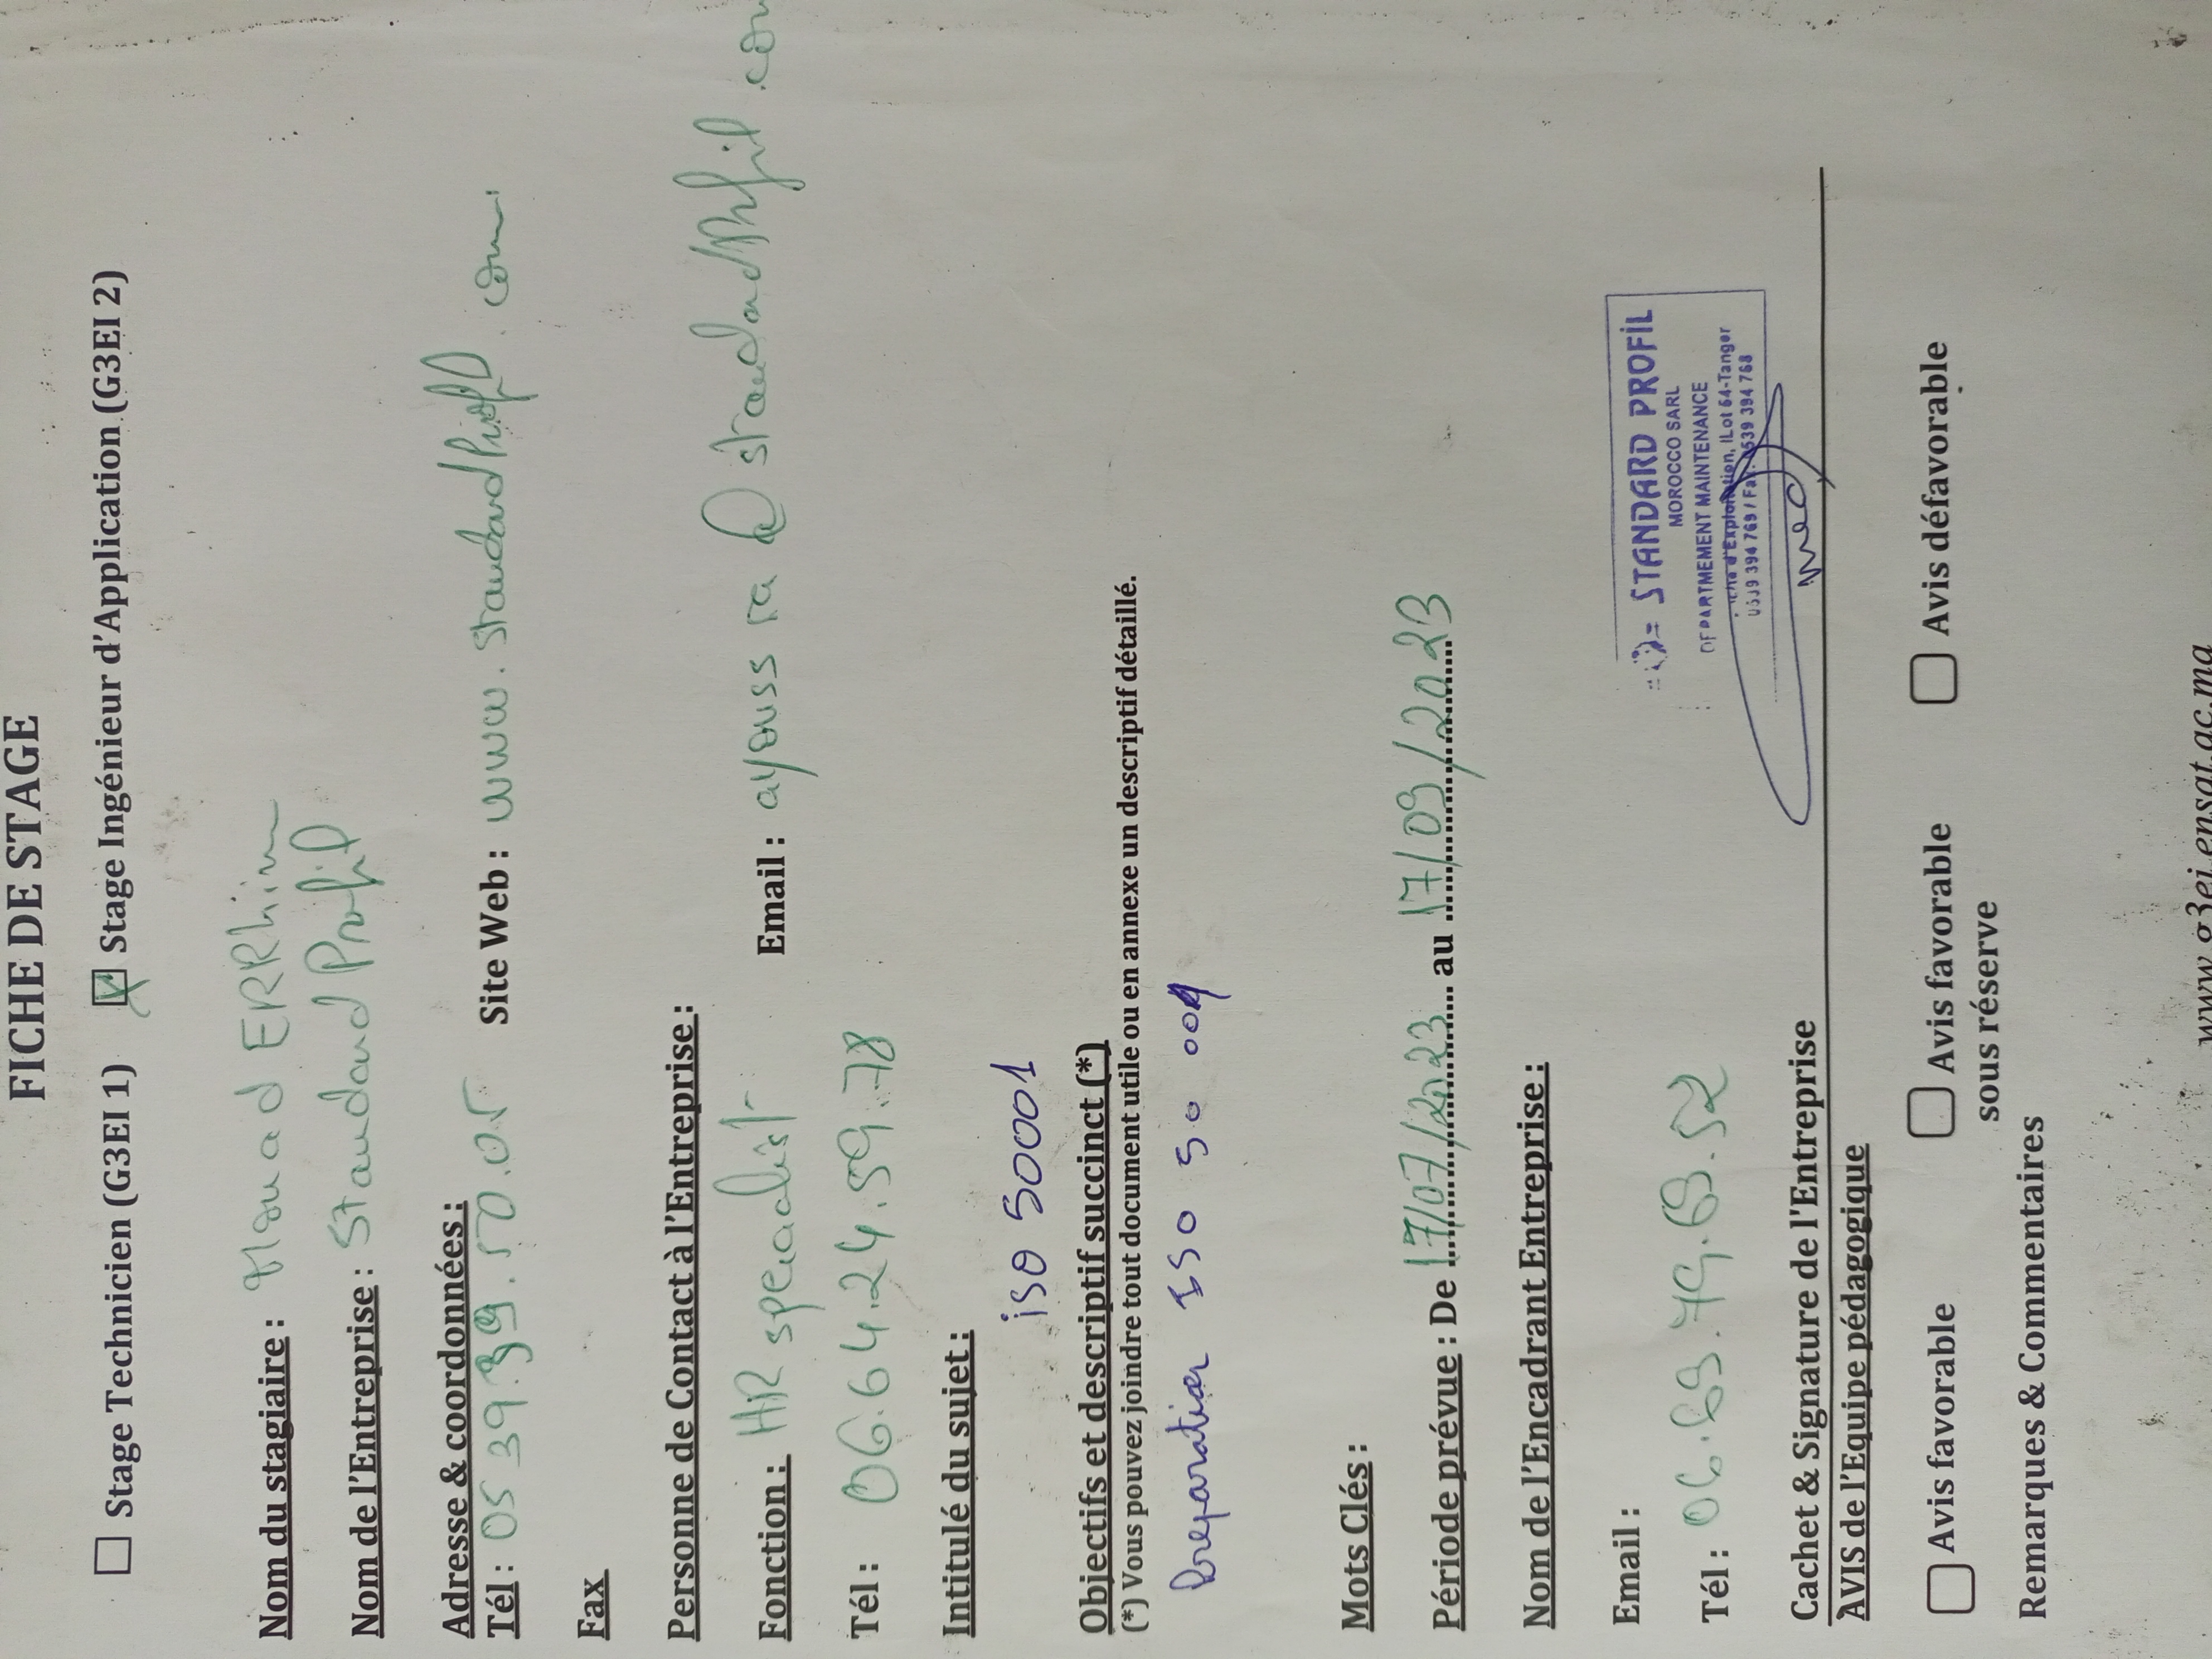 FICHE DE STAGE
Stage Technicien (G3EI 1) Stage Ingénieur d'Application (G3EI 2)
Nom du stagiaire : Mouad ERRhim
Nom de l'Entreprise : Standard Profil
Adresse & coordonnées :
Tél : 05 39 39.50.05 Site Web : www.standardProfil.com
Fax
Personne de Contact à l'Entreprise :
Fonction : HR specialist Email : @standardProfil.com
Tél : 06.64.24.59.78
Intitulé du sujet :
iso 50001
Objectifs et descriptif succinct (*)
(*) Vous pouvez joindre tout document utile ou en annexe un descriptif détaillé.
Preparation ISO 50 001
Mots Clés :
Période prévue : De 17/07/2023 au 17/09/2023
Nom de l'Encadrant Entreprise :
Email :
Tél : 06.69.79.69.52
STANDARD PROFIL
MOROCCO SARL
DEPARTMEMENT MAINTENANCE
d'Exploitation, ILot 64-Tanger
0539 394 769 / Fax: 0539 394 768
Cachet & Signature de l'Entreprise
AVIS de l'Equipe pédagogique
Avis favorable Avis favorable Avis défavorable
sous réserve
Remarques & Commentaires
www.g3ei.ensat.ac.ma